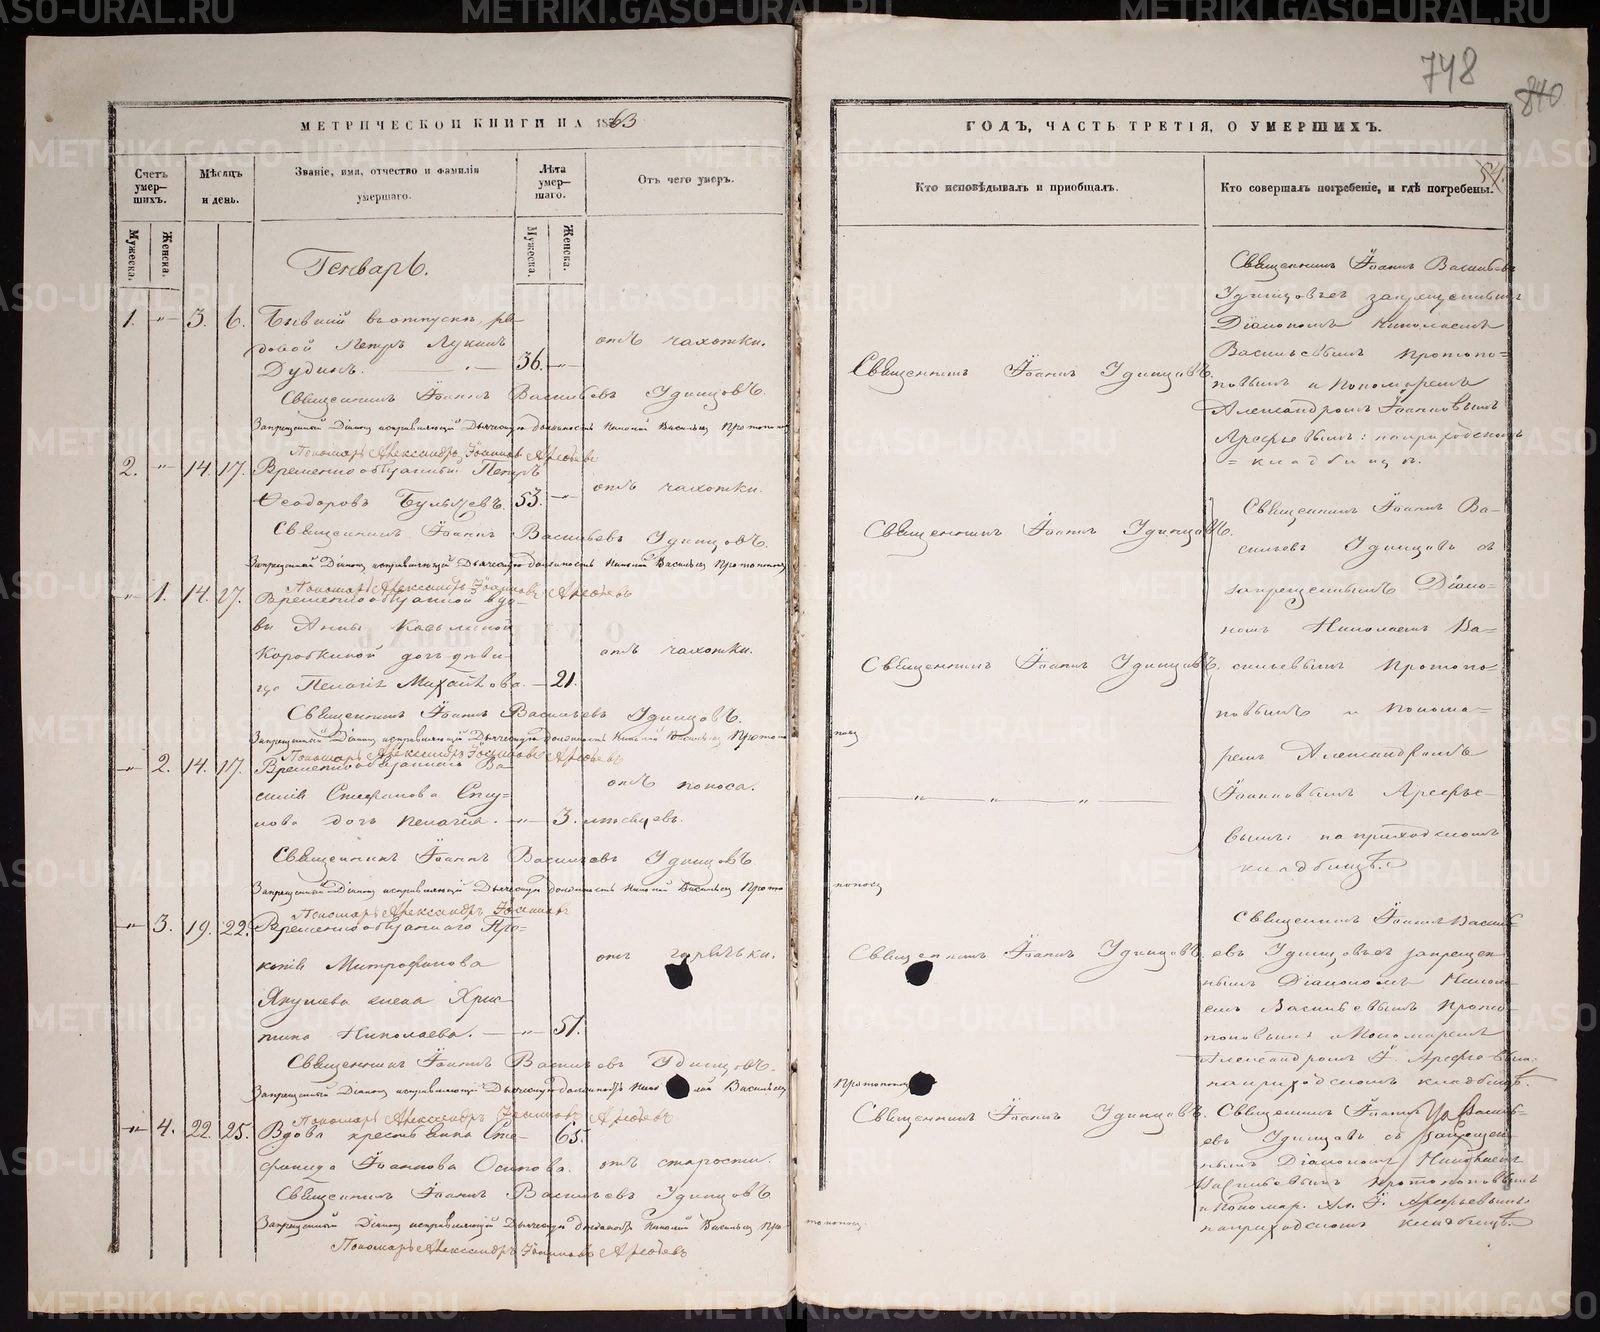 748
840
МЕТРИЧЕСКОЙ КНИГИ НА 1863
Счетъ умер-
шихъ.
Мѣсяцъ
и день.
Званіе, имя, отчество и фамилія
умершаго.
Лѣта
умер-
шаго.
Отъ чего умеръ.
Мужеска.
Женска.
Мужеска.
Женска.
Генварь.
1. -"- 3. 6. Бывшій въ отпуску, ря-
довой Петръ Лукинъ
Дудинъ. 36. -"-
отъ чахотки.
Священникъ Іоаннъ Васильевъ Удинцовъ.
Запрещенный Діаконъ исправляющій Дьяческую должность Николай Васильевъ Протопопов
Пономарь Александръ Іоанновъ Арефьевъ
2. -"- 14. 17. Временнообязанный Петръ
Ѳеодоровъ 53. -"-
отъ чахотки.
Священникъ Іоаннъ Васильевъ Удинцовъ.
Запрещенный Діаконъ исправляющій Дьяческую должность Николай Васильевъ Протопопов
Пономарь Александръ Іоанновъ Арефьевъ
-"- 1. 14. 17. Временнообязанной вдо-
вы Анны Косьминой
Коробкиной дочь дѣви-
ца Пелагія Михайлова. 21.
отъ чахотки.
Священникъ Іоаннъ Васильевъ Удинцовъ.
Запрещенный Діаконъ исправляющій Дьяческую должность Николай Васильевъ Протопопов
Пономарь Александръ Іоанновъ Арефьевъ
-"- 2. 14. 17. Временнообязаннаго Ва-
силія Стефанова
дочь Пелагія. -"- 3. мѣсяцевъ.
отъ поноса.
Священникъ Іоаннъ Васильевъ Удинцовъ
Запрещенный Діаконъ исправляющій Дьяческую должность Николай Васильевъ Протопопов
Пономарь Александръ Іоанновъ
-"- 3. 19. 22. Временнообязаннаго Про-
копія Митрофанова
Якушева жена Хрис-
тина Николаева. -"- 51.
отъ горячьки.
Священникъ Іоаннъ Васильевъ Удинцовъ.
Запрещенный Діаконъ исправляющій Дьяческую должность Николай Васильевъ Протопопов
Пономарь Александръ Іоанновъ Арефьевъ
-"- 4. 22. 25. Вдова крестьянка Сте-
фанида Іоаннова Осипова. 65.
отъ старости.
Священникъ Іоаннъ Васильевъ Удинцовъ
Запрещенный Діаконъ исправляющій Дьяческую должность Николай Васильевъ Протопопов
Пономарь Александръ Іоанновъ Арефьевъ
ГОДЪ, ЧАСТЬ ТРЕТІЯ, О УМЕРШИХЪ.
Кто исповѣдывалъ и пріобщалъ.
Кто совершалъ погребеніе, и гдѣ погребены.
Священникъ Іоаннъ Удинцовъ.
Священникъ Іоаннъ Васильевъ
Удинцовъ съ запрещеннымъ
Діакономъ Николаемъ
Васильевымъ Протопо-
повымъ и Пономаремъ
Александромъ Іоанновымъ
Арефьевымъ: на приходскомъ
кладбищѣ.
Священникъ Іоаннъ Удинцовъ.
Священникъ Іоаннъ Удинцовъ.
Священникъ Іоаннъ Ва-
сильевъ Удинцовъ съ
запрещеннымъ Діако-
номъ Николаемъ Ва-
сильевымъ Протопо-
повымъ и Понома-
ремъ Александромъ
Іоанновымъ Арефье-
вымъ: на приходскомъ
кладбищѣ.
Священникъ Іоаннъ Удинцовъ.
Священникъ Іоаннъ Василь-
евъ Удинцовъ съ запрещен-
нымъ Діакономъ Никола-
емъ Васильевымъ Прото-
поповымъ и Пономаремъ
Александромъ І. Арефьевымъ:
на приходскомъ кладбищѣ.
Священникъ Іоаннъ Удинцовъ.
Священникъ Іоаннъ Василь-
евъ Удинцовъ съ запрещен-
нымъ Діакономъ Николаемъ
Васильевымъ Протопоповымъ
и Пономар. Ал. І. Арефьевымъ
на приходскомъ кладбищѣ.
METRIKI.GASO-URAL.RU